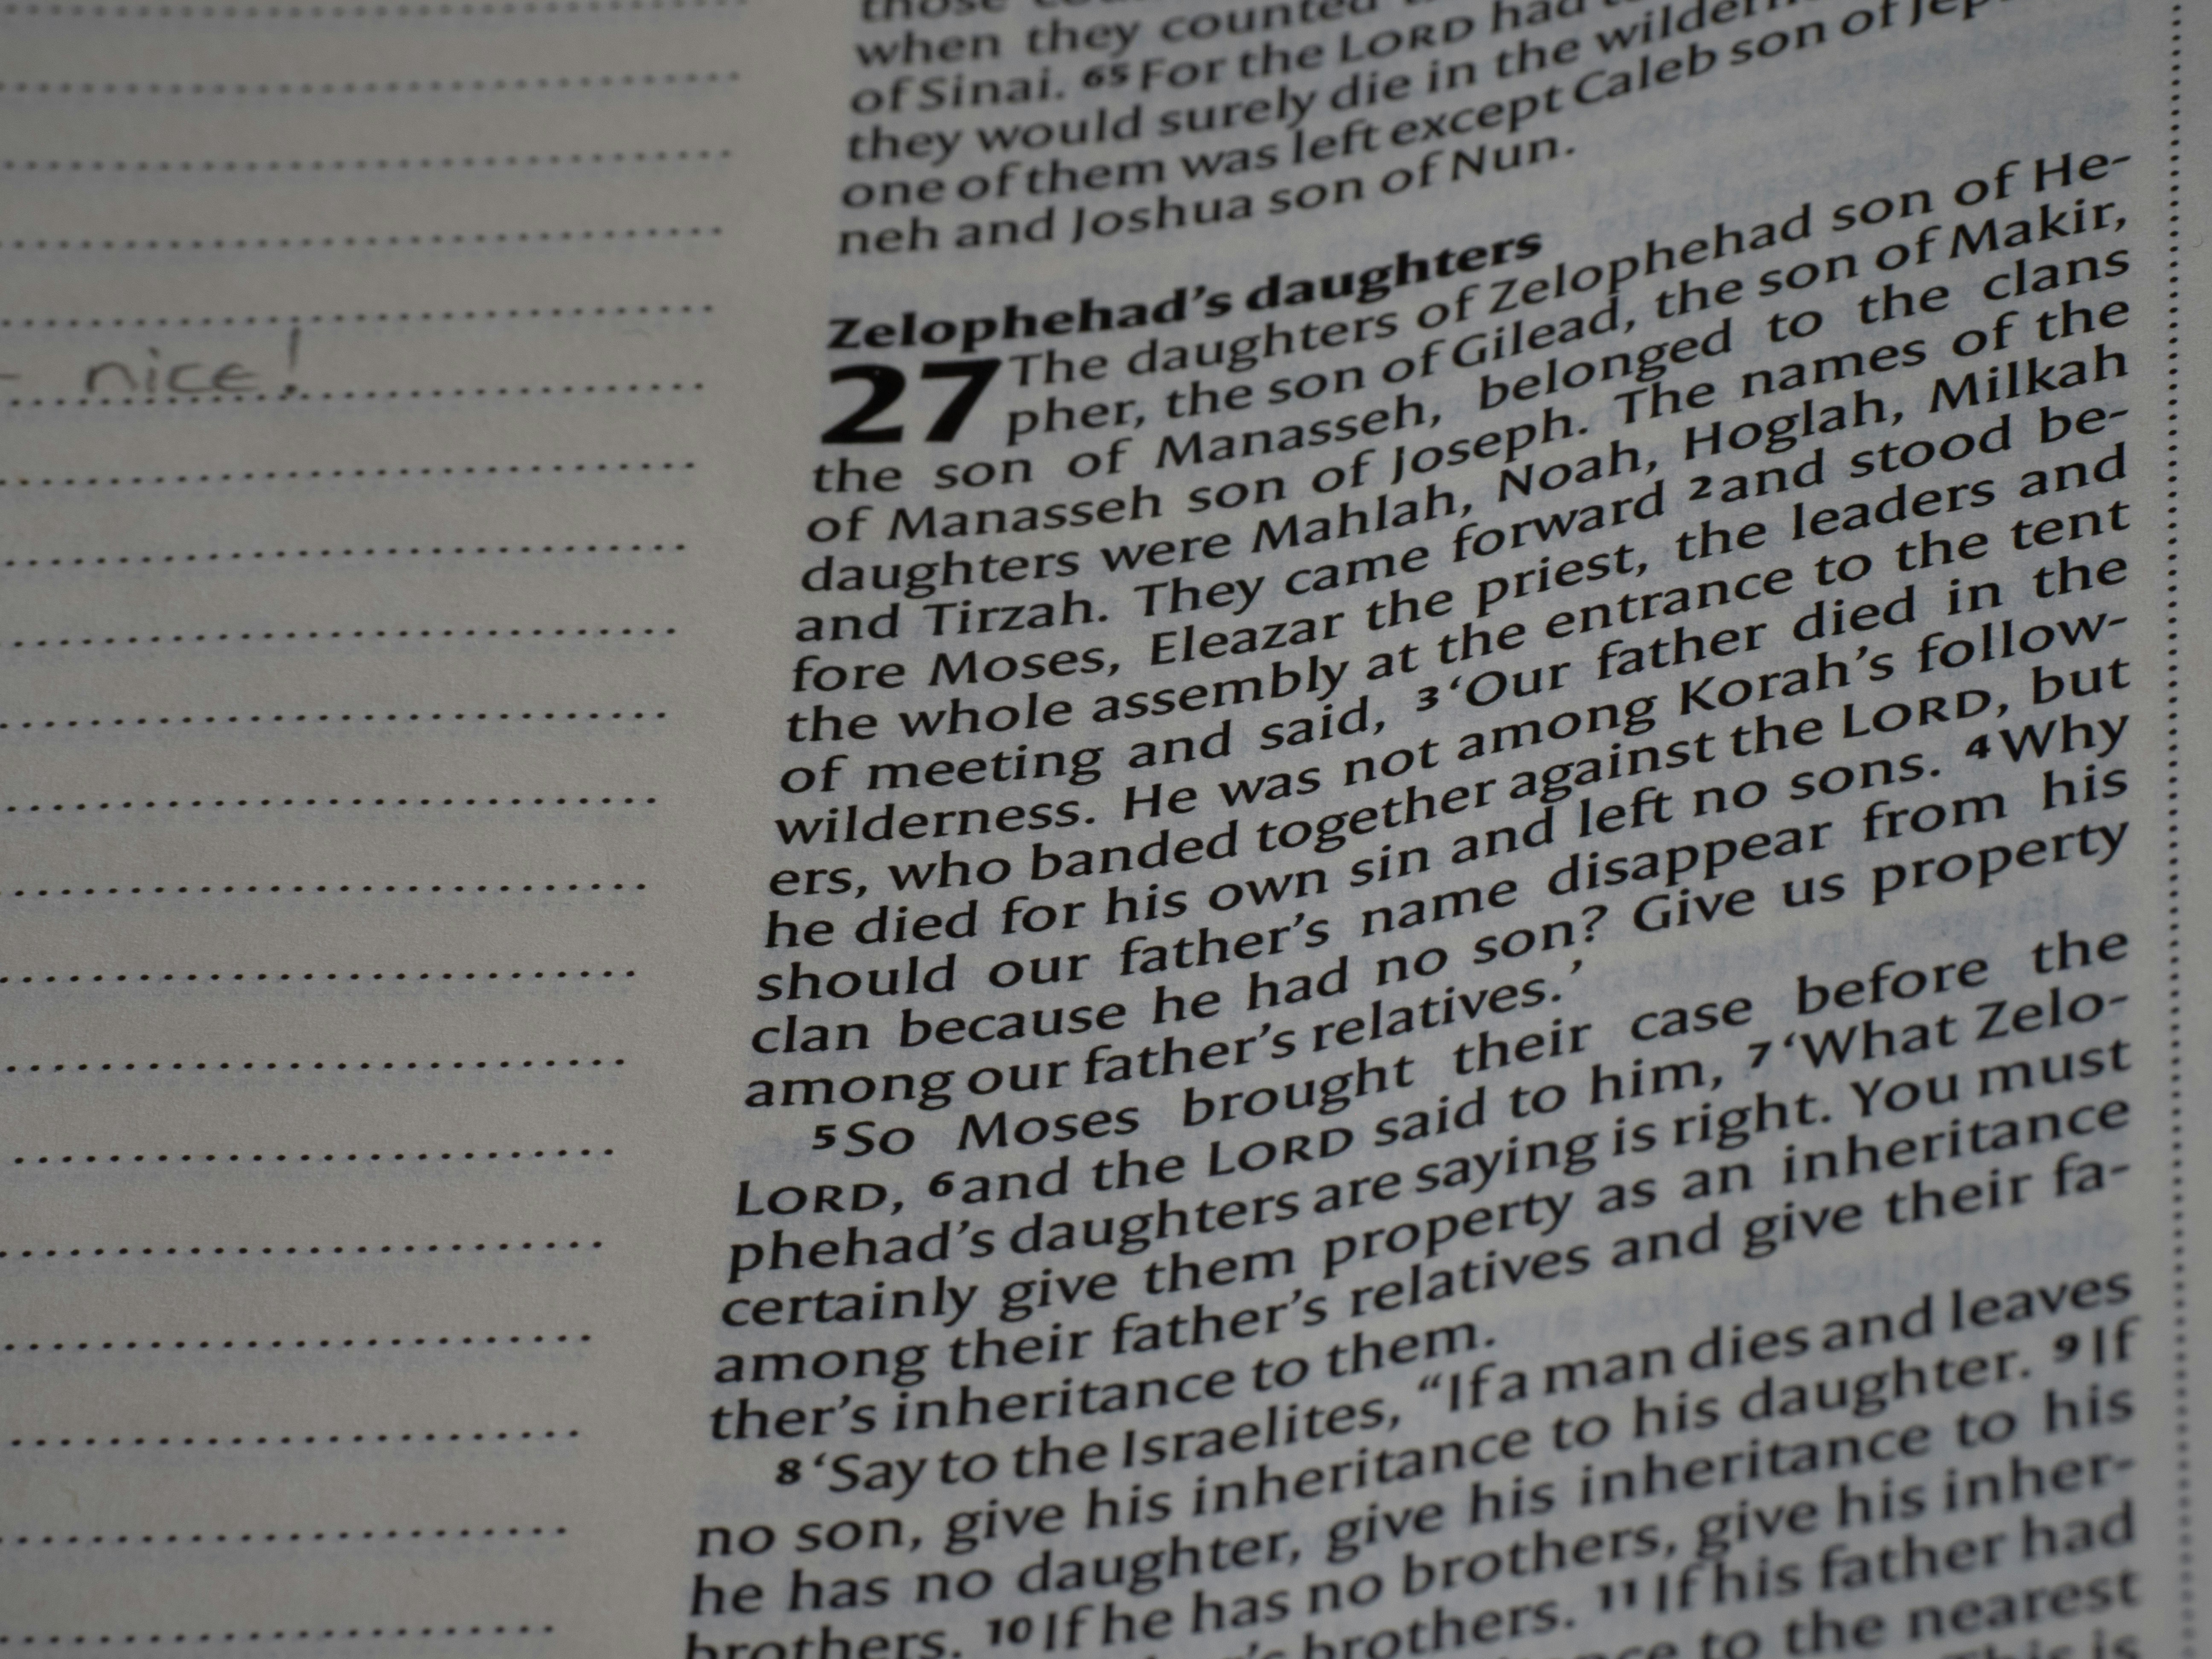 - nice!
those
when they counted
of Sinai. 65 For the LORD had
they would surely die in the
one of them was left except Caleb son of
neh and Joshua son of Nun.
Zelophehad's daughters
27 The daughters of Zelophehad son of He-
pher, the son of Gilead, the son of Makir,
the son of Manasseh, belonged to the clans
of Manasseh son of Joseph. The names of the
daughters were Mahlah, Noah, Hoglah, Milkah
and Tirzah. They came forward 2 and stood be-
fore Moses, Eleazar the priest, the leaders and
the whole assembly at the entrance to the tent
of meeting and said, 3 ‘Our father died in the
wilderness. He was not among Korah's follow-
ers, who banded together against the LORD, but
he died for his own sin and left no sons. 4 Why
should our father's name disappear from his
clan because he had no son? Give us property
among our father's relatives.’
5 So Moses brought their case before the
LORD, 6 and the LORD said to him, 7 ‘What Zelo-
phehad's daughters are saying is right. You must
certainly give them property as an inheritance
among their father's relatives and give their fa-
ther's inheritance to them.
8 ‘Say to the Israelites, “If a man dies and leaves
no son, give his inheritance to his daughter. 9 If
he has no daughter, give his inheritance to his
brothers. 10 If he has no brothers, give his inher-
brothers. 11 If his father had
to the nearest
This is